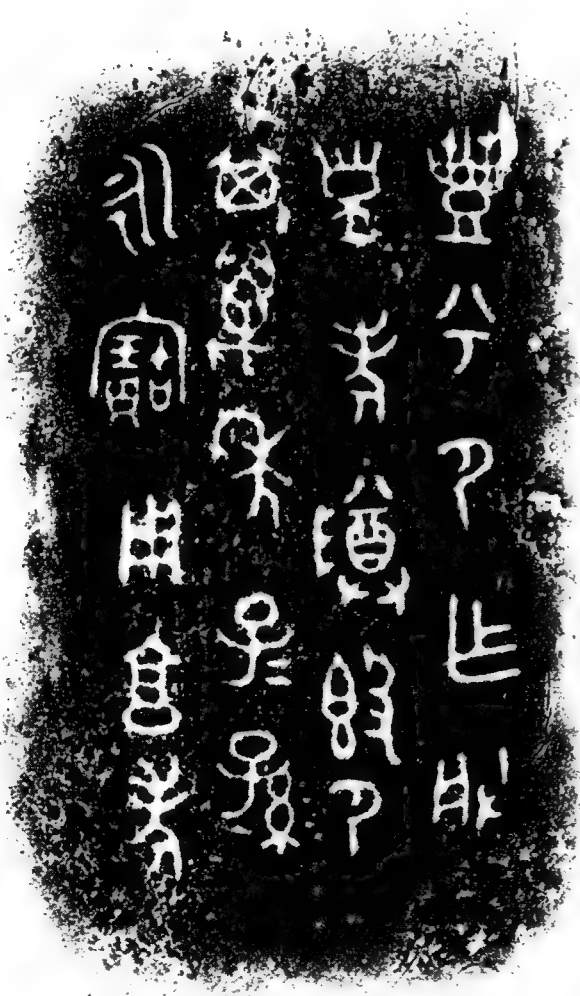 豐兮尸乍朕
皇考𨺅𣪘尸
其萬年子=孫
永寶用享考